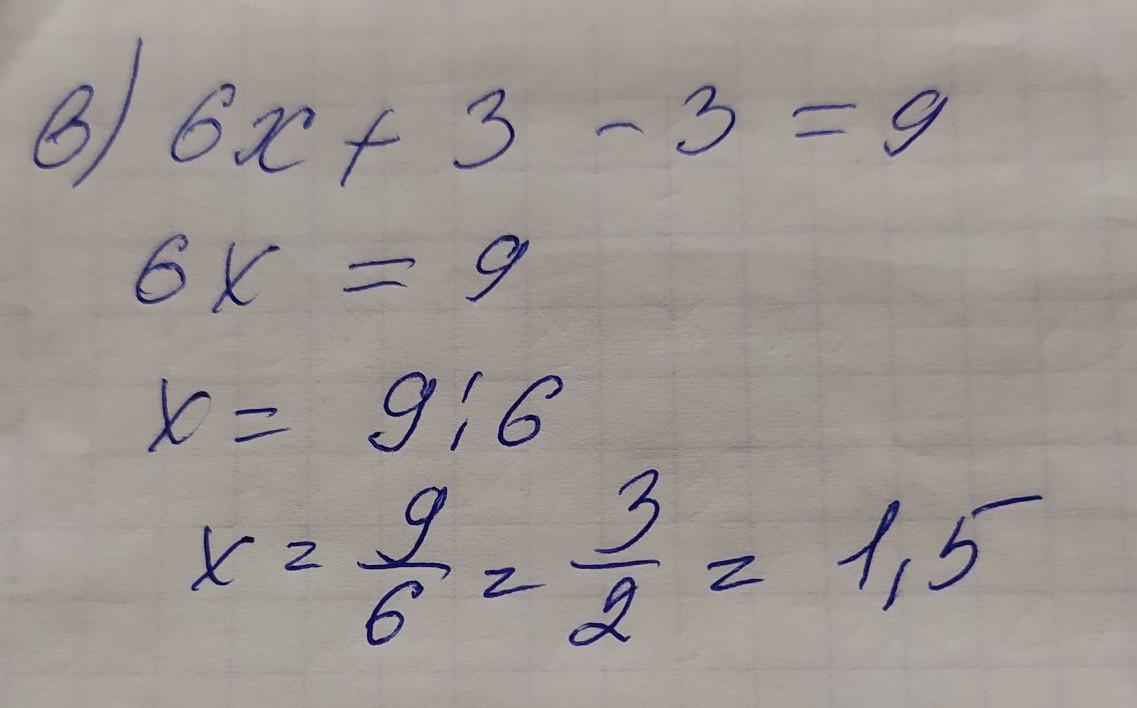 в) 6x + 3 - 3 = 9
6x = 9
x = 9 : 6
x = 9/6 = 3/2 = 1,5